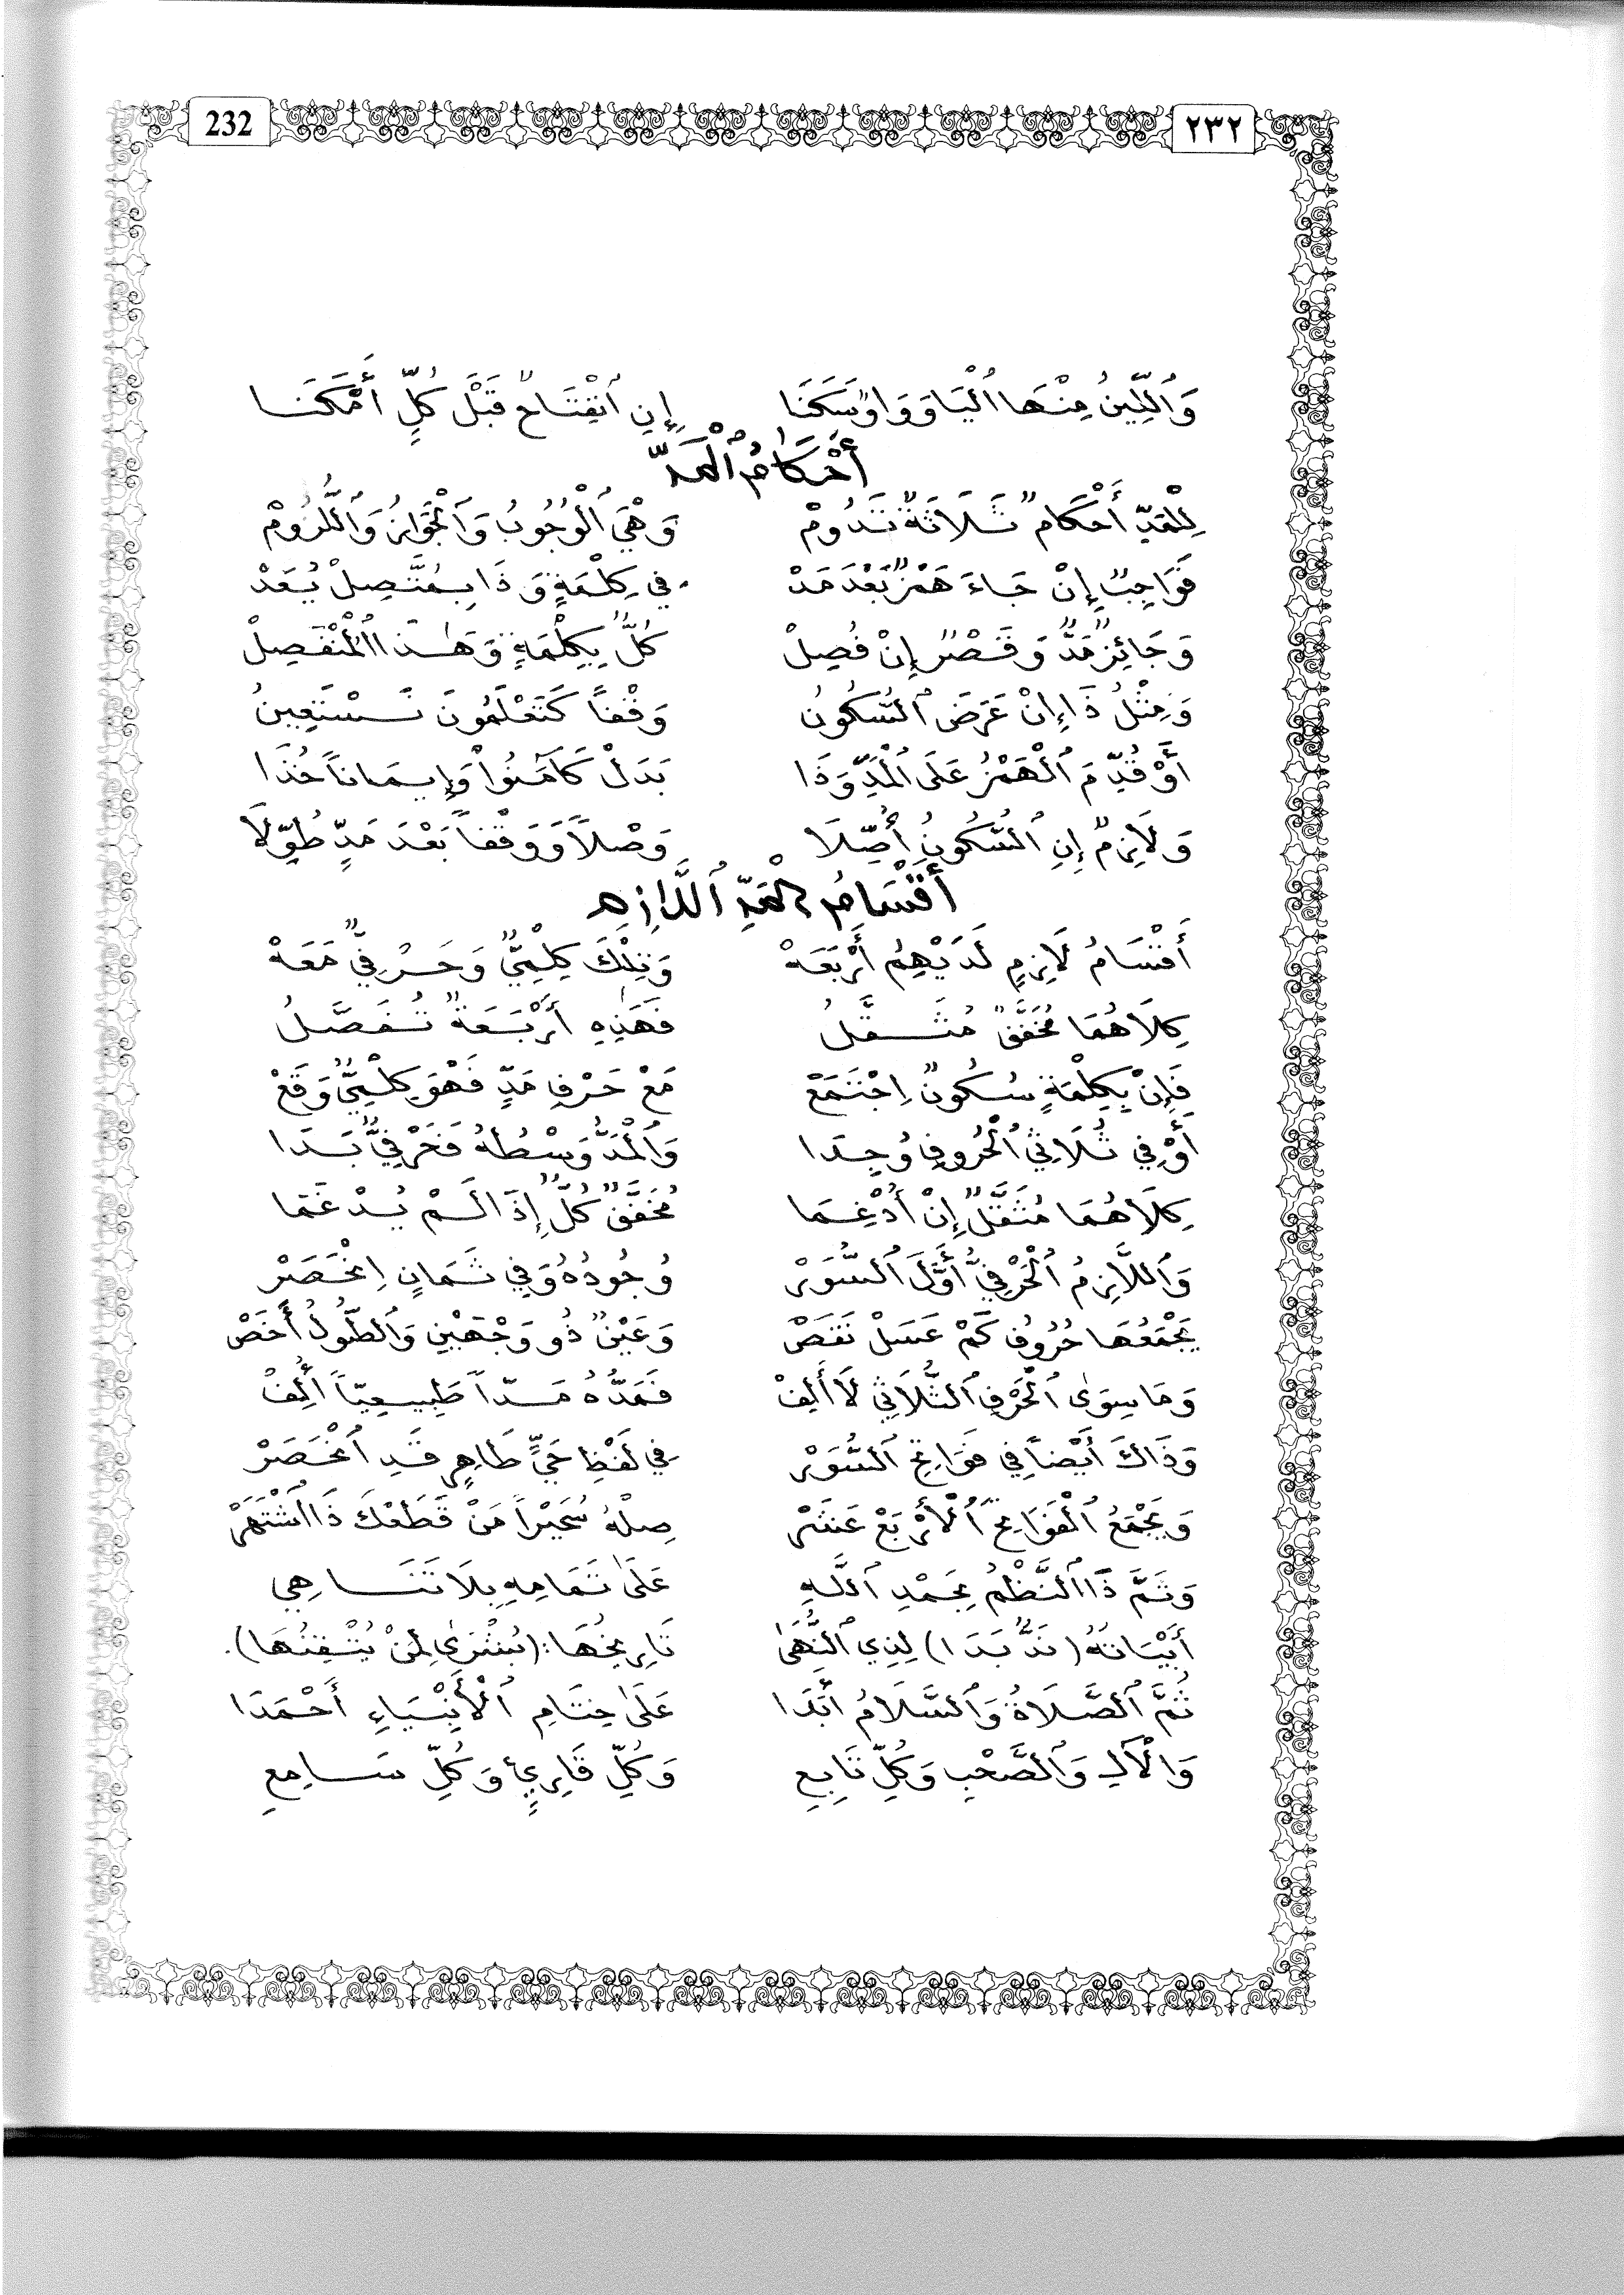 ٢٣٢ 232
وَٱللِّينُ مِنْهَا ٱلْيَا وَوَاوٌ سَكَنَا إِنِ ٱنْفِتَاحٌ قَبْلَ كُلٍّ أُمْكِنَا
أَحْكَامُ ٱلْمَدِّ
لِلْمَدِّ أَحْكَامٌ ثَلَاثَةٌ تَدُومْ وَهْيَ ٱلْوُجُوبُ وَٱلْجَوَازُ وَٱللُّزُومْ
فَوَاجِبٌ إِنْ جَاءَ هَمْزٌ بَعْدَ مَدْ فِي كِلْمَةٍ وَذَا بِمُتَّصِلْ يُعَدْ
وَجَائِزٌ مَدٌّ وَقَصْرٌ إِنْ فُصِلْ كُلٌّ بِكِلْمَةٍ وَهَٰذَا ٱلْمُنْفَصِلْ
وَمِثْلُ ذَا إِنْ عَرَضَ ٱلسُّكُونُ وَقْفاً كَتَعْلَمُونَ نَسْتَعِينُ
أَوْ قُدِّمَ ٱلْهَمْزُ عَلَى ٱلْمَدِّ وَذَا بَدَلْ كَآمَنُواْ وَإِيمَاناً خُذَا
وَلَازِمٌ إِنِ ٱلسُّكُونُ أُصِّلَا وَصْلاً وَوَقْفاً بَعْدَ مَدٍّ طُوِّلَا
أَقْسَامُ ٱلْمَدِّ ٱللَّازِمِ
أَقْسَامُ لَازِمٍ لَدَيْهِمُ أَرْبَعَهْ وَتِلْكَ كِلْمِيٌّ وَحَرْفِيٌّ مَعَهْ
كِلَاهُمَا مُخَفَّفٌ مُثَقَّلُ فَهَٰذِهِ أَرْبَعَةٌ تُفَصَّلُ
فَإِنْ بِكِلْمَةٍ سُكُونٌ اِجْتَمَعْ مَعْ حَرْفِ مَدٍّ فَهْوَ كِلْمِيٌّ وَقَعْ
أَوْ فِي ثُلَاثِيِّ ٱلْحُرُوفِ وُجِدَا وَٱلْمَدُّ وَسْطُهُ فَحَرْفِيٌّ بَدَا
كِلَاهُمَا مُثَقَّلٌ إِنْ أُدْغِمَا مُخَفَّفٌ كُلٌّ إِذَا لَمْ يُدْغَمَا
وَٱللَّازِمُ ٱلْحَرْفِيُّ أَوَّلَ ٱلسُّوَرْ وُجُودُهُ وَفِي ثَمَانٍ اِنْحَصَرْ
يَجْمَعُهَا حُرُوفُ كَمْ عَسَلْ نَقَصْ وَعَيْنٌ ذُو وَجْهَيْنِ وَٱلطُّولُ أَخَصْ
وَمَا سِوَى ٱلْحَرْفِ ٱلثُّلَاثِي لَا أَلِفْ فَمَدُّهُ مَدّاً طَبِيعِيّاً أُلِفْ
وَذَاكَ أَيْضاً فِي فَوَاتِحِ ٱلسُّوَرْ فِي لَفْظِ حَيٍّ طَاهِرٍ قَدِ ٱنْحَصَرْ
وَيَجْمَعُ ٱلْفَوَاتِحَ ٱلْأَرْبَعْ عَشَرْ صِلْهُ سُحَيْراً مَنْ قَطَعْكَ ذَا ٱشْتَهَرْ
وَتَمَّ ذَا ٱلنَّظْمُ بِحَمْدِ ٱللَّهِ عَلَىٰ تَمَامِهِ بِلَا تَنَاهِي
أَبْيَاتُهُ (نَدٌّ بَدَا) لِذِي ٱلنُّهَىٰ تَارِيخُهَا: (بُشْرَىٰ لِمَنْ يُتْقِنُهَا).
ثُمَّ ٱلصَّلَاةُ وَٱلسَّلَامُ أَبَدَا عَلَىٰ خِتَامِ ٱلْأَنْبِيَاءِ أَحْمَدَا
وَٱلْآلِ وَٱلصَّحْبِ وَكُلِّ تَابِعِ وَكُلِّ قَارِئٍ وَكُلِّ سَامِعِ